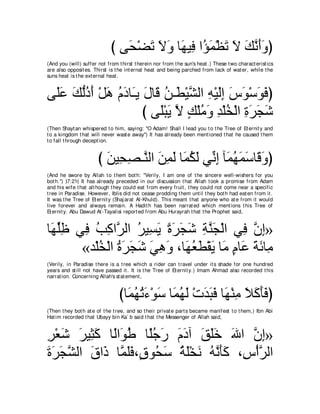 ( وَأَنَّكَ لاَ تَظْمَؤُا فِيهَا وَلاَ تَضْحَى )
(And you (will) suffer not from thirst therein nor from the sun's heat.) These two characteristics
are also opposites. Thirst is the internal heat and being parched from lack of water, while the
suns heat is the external heat.
(فَوَسْوَسَ إِلَيْهِ الشَّيْطَـنُ قَالَ يـَادَمُ هَلْ أَدُلُّكَ عَلَى
شَجَرَةِ الْخُلْدِ وَمُلْكٍ لاَّ يَبْلَى )
(Then Shaytan whispered to him, saying: "O Adam! Shall I lead you to the Tree of Eternity and
to a kingdom that will never waste away") It has already been mentioned that he caused them
to fall through deception.
(وَقَاسَمَهُمَآ إِنِّي لَكُمَا لَمِنَ النَّـصِحِينَ )
(And he swore by Allah to them both: "Verily, I am one of the sincere well-wishers for you
both.") [7:21] It has already preceded in our discussion that Allah took a promise from Adam
and his wife that although they could eat from every fruit, they could not come near a specific
tree in Paradise. However, Iblis did not cease prodding them until they both had eaten from it.
It was the Tree of Eternity (Shajarat Al-Khuld). This meant that anyone who ate from it would
live forever and always remain. A Hadith has been narrated which mentions this Tree of
Eternity. Abu Dawud At-Tayalisi reported from Abu Hurayrah that the Prophet said,
«إِنَّ فِي الْجَنَّةِ شَجَرَةً يَسِيرُ الرَّاكِبُ فِي ظِلِّهَا
مِائَةَ عَامٍ مَا يَقْطَعُهَا، وَهِيَ شَجَرَةُ الْخُلْد»
(Verily, in Paradise there is a tree which a rider can travel under its shade for one hundred
years and still not have passed it. It is the Tree of Eternity.) Imam Ahmad also recorded this
narration. Concerning Allah's statement,
(فَأَكَلاَ مِنْهَا فَبَدَتْ لَهُمَا سَوْءَتُهُمَا)
(Then they both ate of the tree, and so their private parts became manifest to them,) Ibn Abi
Hatim recorded that Ubayy bin Ka`b said that the Messenger of Allah said,
«إِنَّ اللهَ خَلَقَ آدَمَ رَجُلًا طُوَالًا كَثِيرَ شَعْرِ
الرَّأْسِ، كَأَنَّهُ نَخْلَةُ سَحُوقٍ، فَلَمَّا ذَاقَ الشَّجَرَةَ